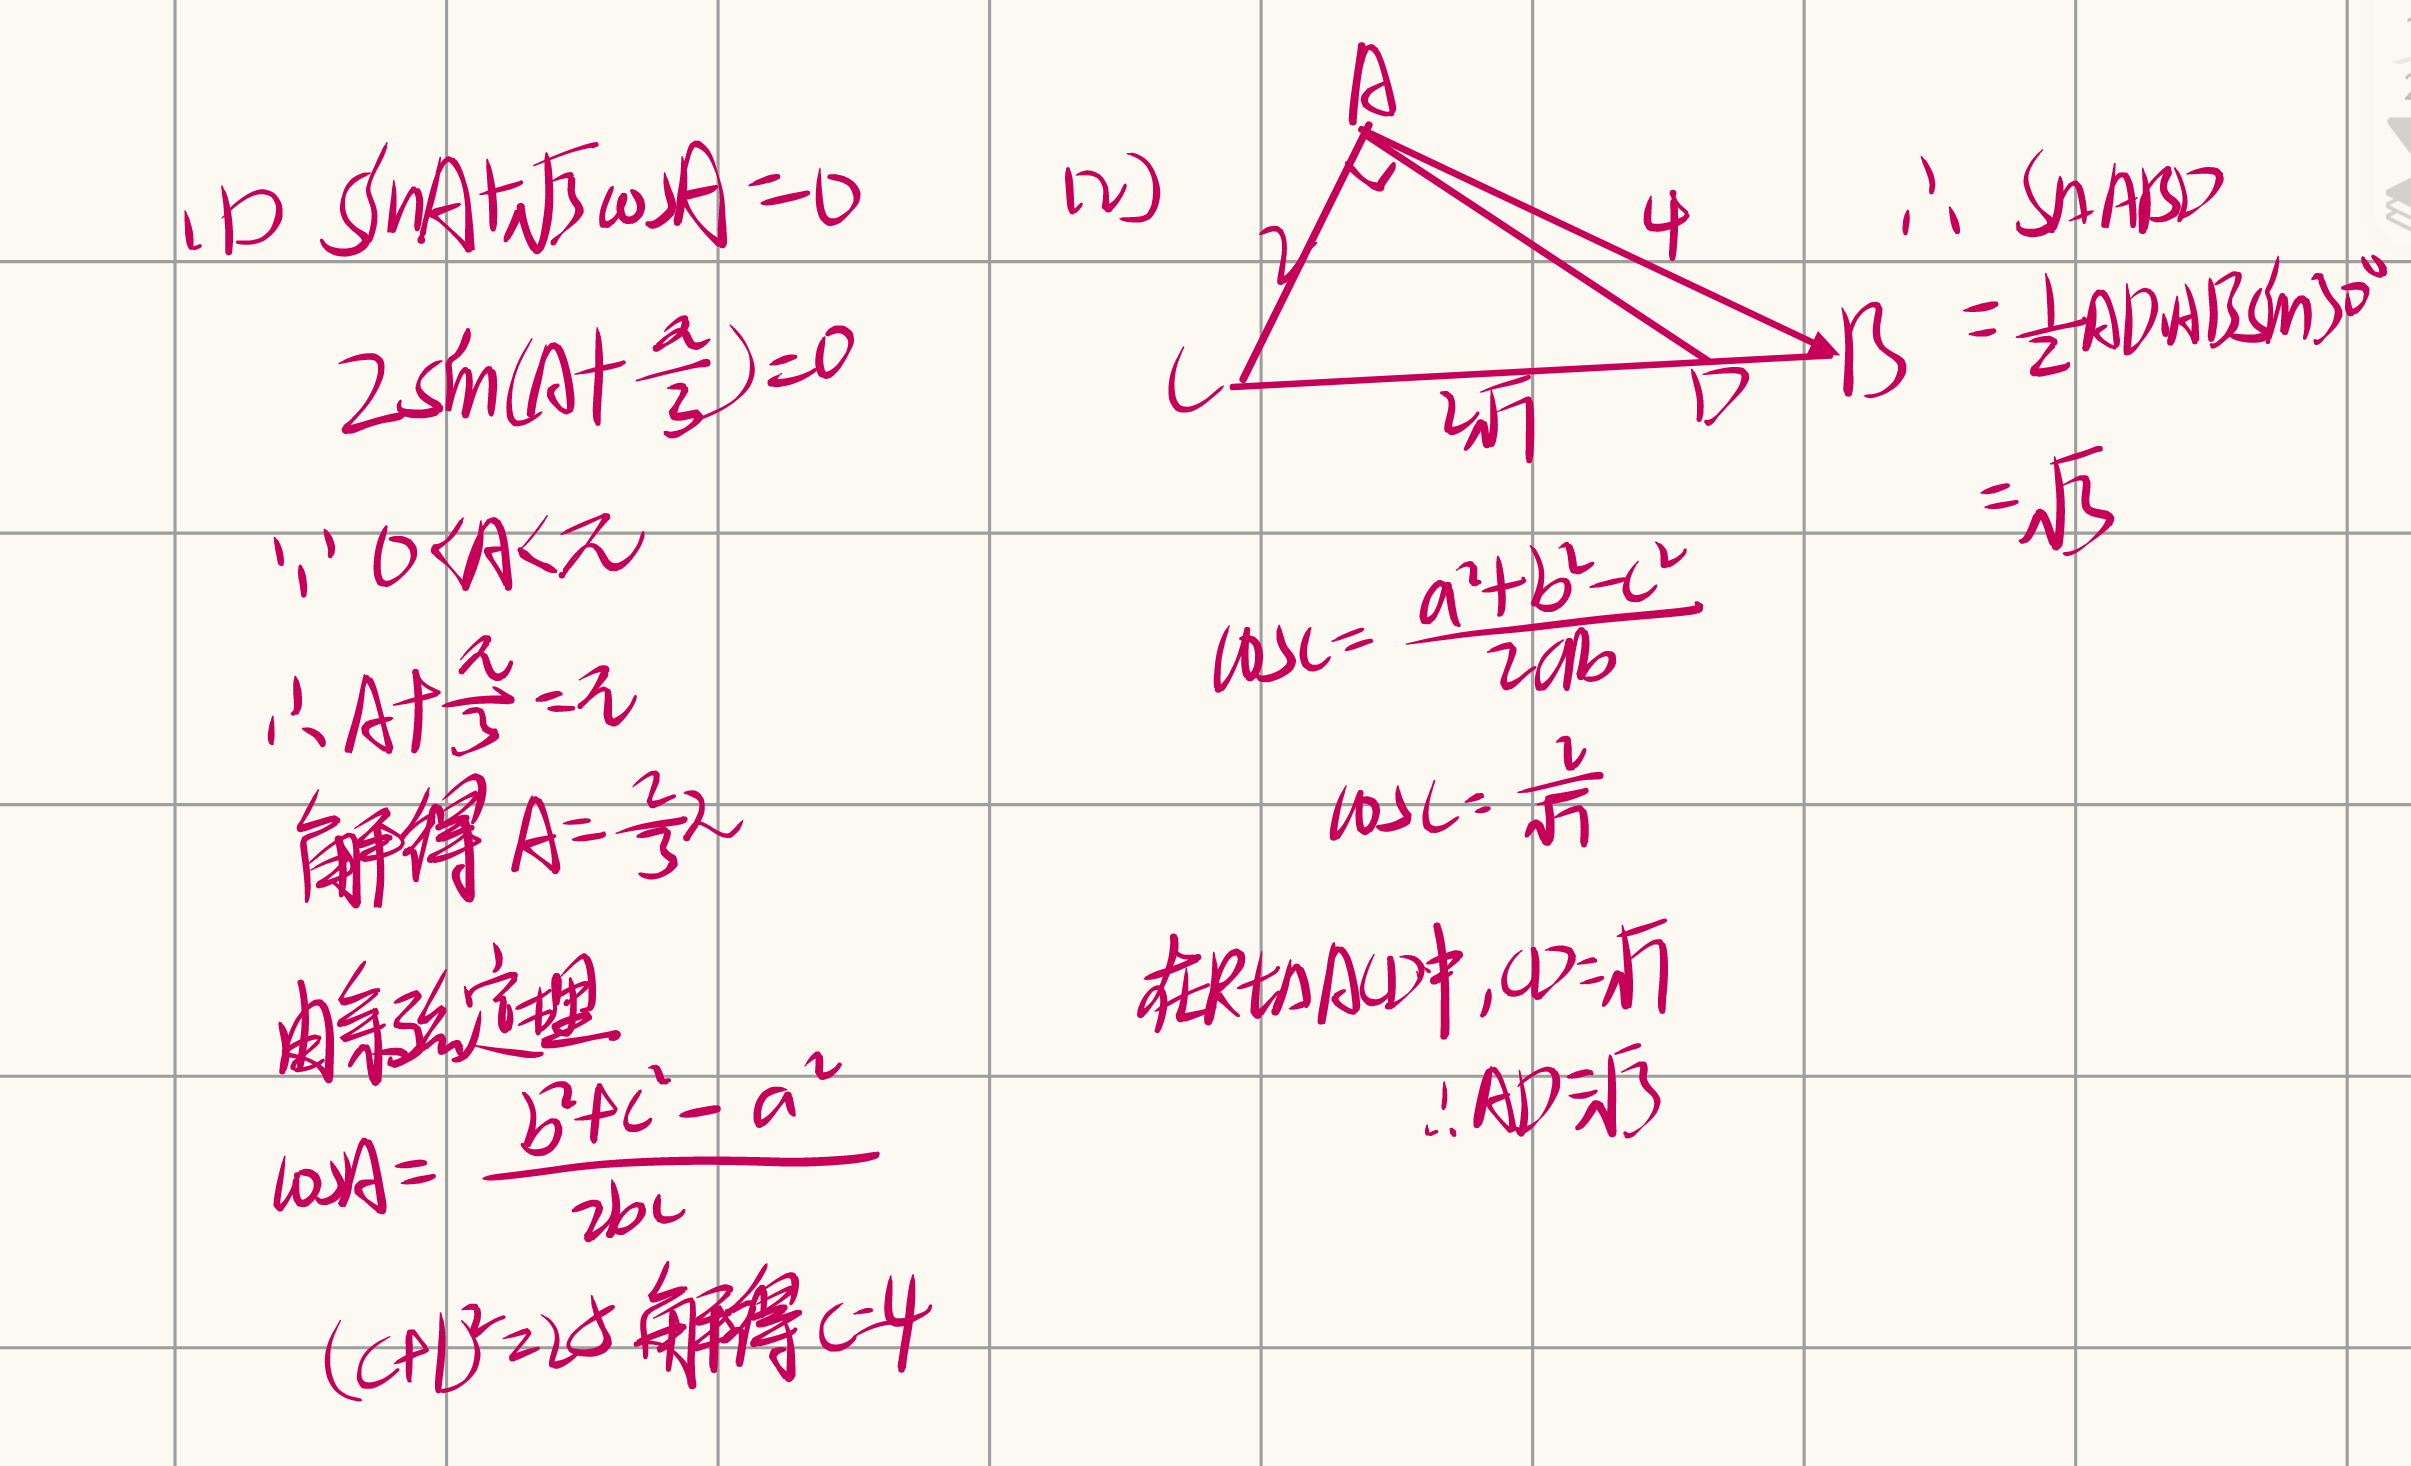 (1) sinA+√3cosA=0
2sin(A+π/3)=0
∵ 0<A<π
∴ A+π/3=π
解得 A=2/3π
由余弦定理
cosA=(b²+c²-a²)/2bc
(c+1)²=25 解得 c=4
(2)
A
2
4
C
2√7
D
B
cosC=(a²+b²-c²)/2ab
cosC=2/√7
在Rt△ACD中,CD=√7
∴AD=√3
∴ S△ABD
=1/2AD·ABsin30°
=√3